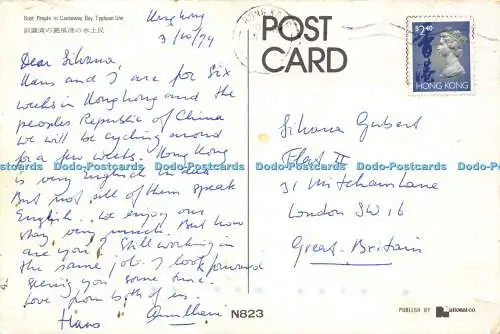 Boat People in Causeway Bay Typhoon Site
Hong Kong
3/10/94
POST
CARD
HONG KONG
$2.40
香港
HONG KONG
Dear Silvana,
Hans and I are for six
weeks in Hongkong and the
peoples Republic of China
We will be cycling around
for a few weeks. Hong Kong
is very English in
But not all of them speak
English. We enjoy our
stay very much. But how
are you? Still working in
the same job. I look forward
seeing you some time.
Love from both of us.
Hans
Silvana Gubert
Flat II
31 Mitcham Lane
London SW 16
Great-Britain
Dodo-Postcards Dodo-Postcards Dodo-Postcards Dodo-Postcards Dodo-Postcards Dodo-Postcards
N823
PUBLISH BY National CO.